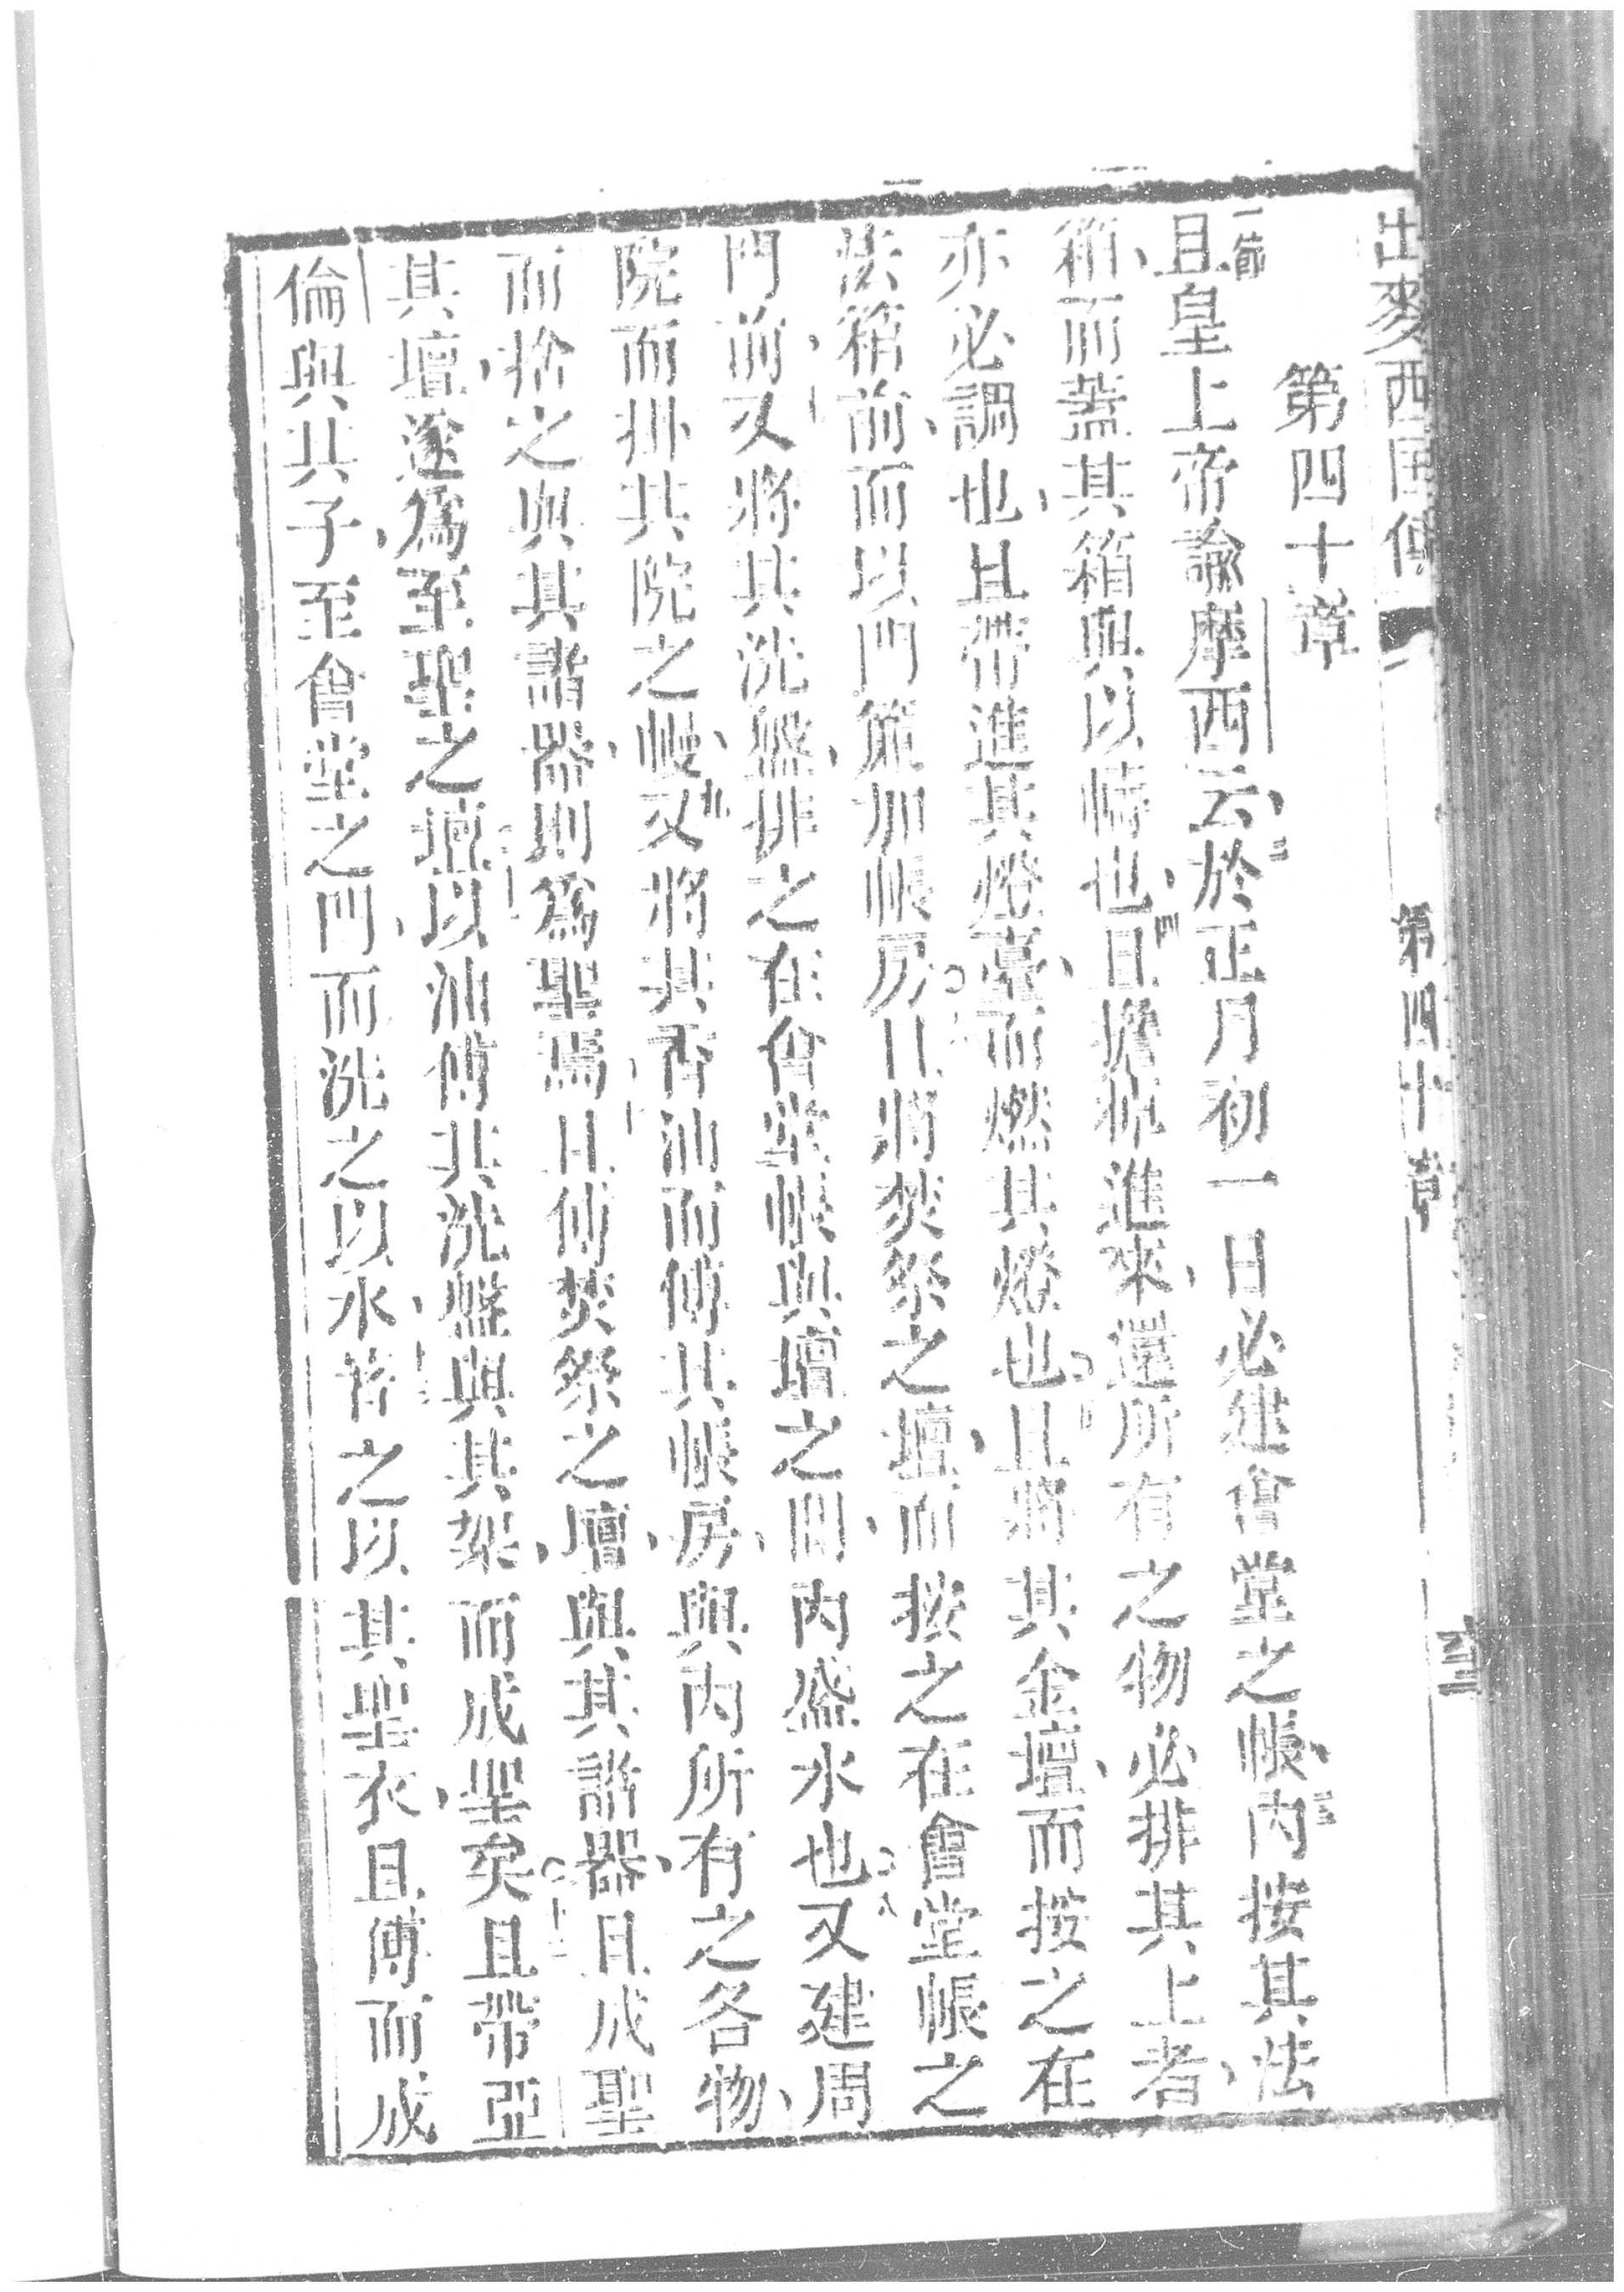 出麥西國傳 第四十章
第四十章
一節 且皇上帝諭摩西云、二於正月初一日必建會堂之帳、三內按其法
箱、而蓋其箱與以幃也、四且擔棹進來、還所有之物必排其上者、
亦必調也、且帶進其燈臺、而燃其燈也。五且將其金壇、而按之在
法箱前、而以門簾加帳房。六且將焚祭之壇、而按之在會堂帳之
門前、七又將其洗盤、排之在會堂帳與壇之間、內盛水也。八又建周
院而掛其院之幔、九又將其香油而傅其帳房、與內所有之各物、
而捨之與其諸器、則爲聖焉。十且傅焚祭之壇、與其諸器、且成聖
其壇、遂爲至聖之壇。十一以油傅其洗盤與其架、而成聖矣。十二且帶亞
倫與其子、至會堂之門、而洗之以水、十三着之以其聖衣、且傅而成